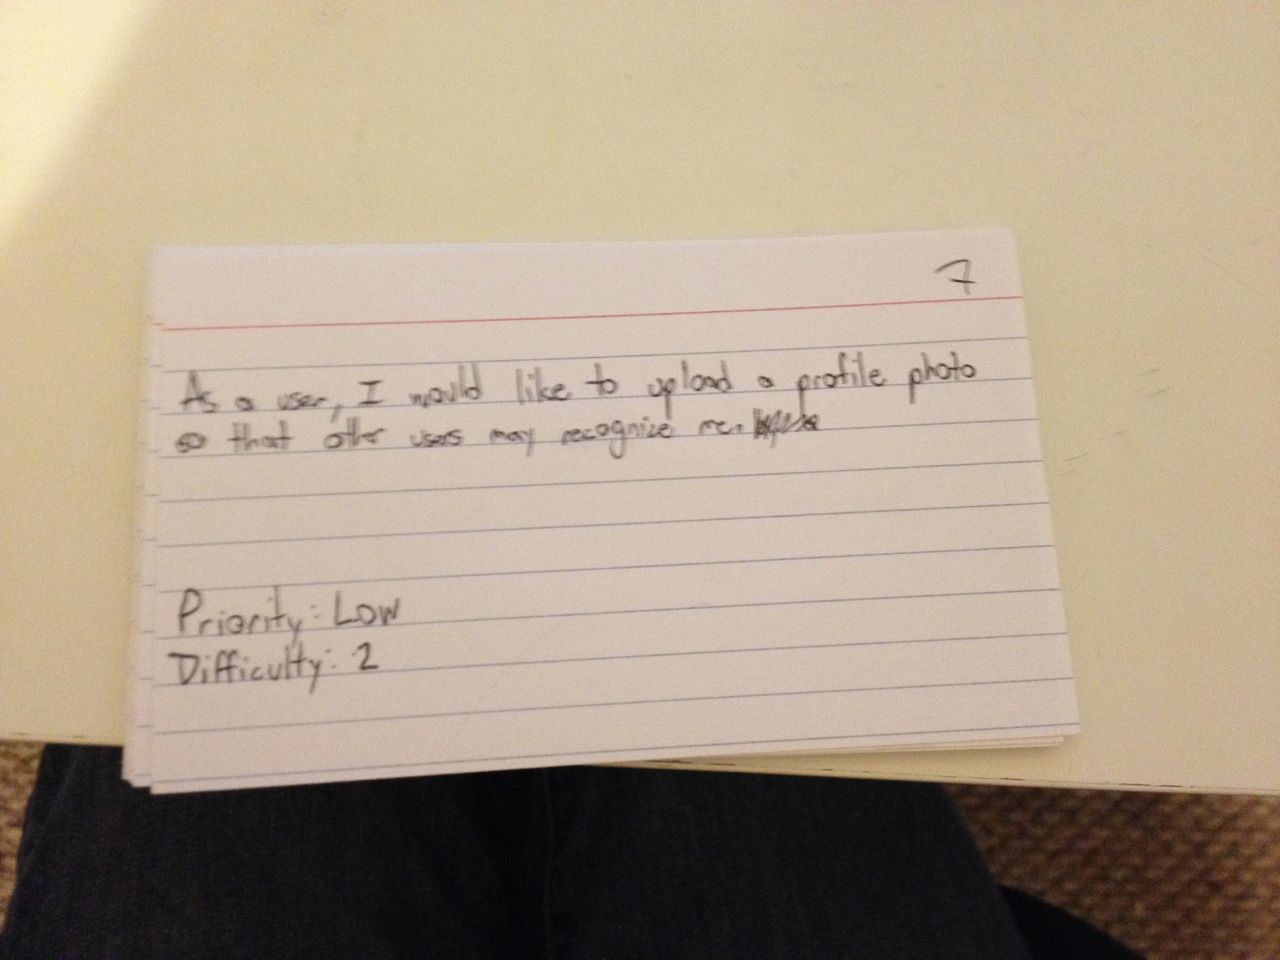 7
As a user, I would like to upload a profile photo
so that other users may recognize me.
Priority: Low
Difficulty: 2